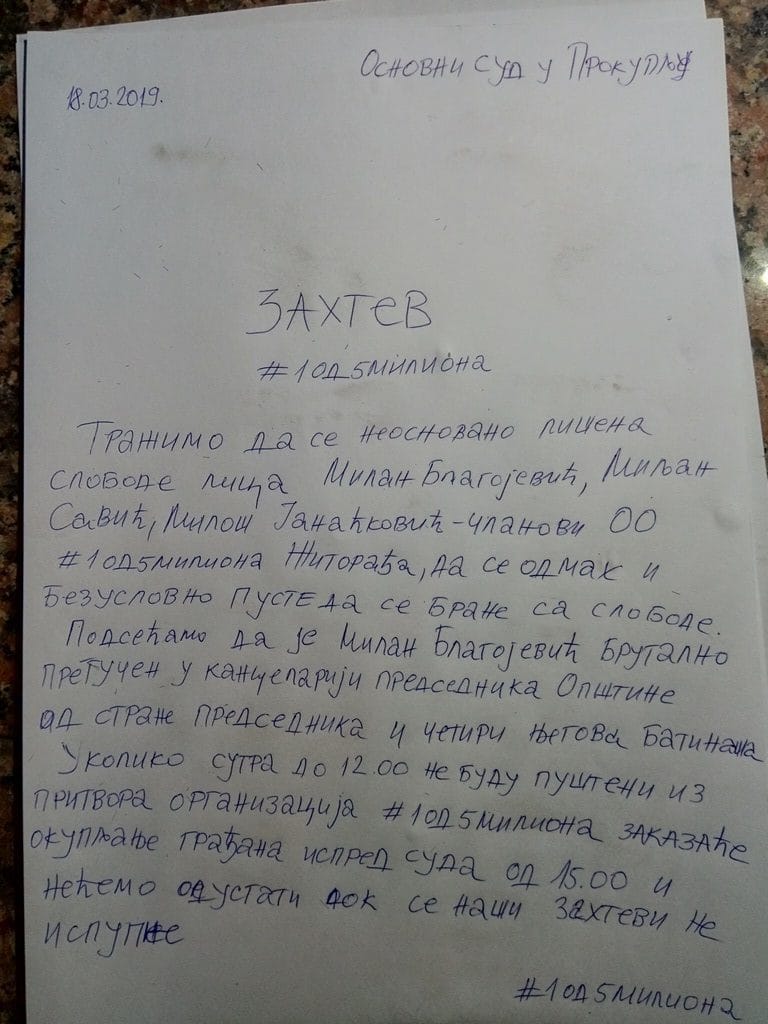 Основни суд у Прокупљу
18.03.2019.
ЗАХТЕВ
#1од5милиона
Тражимо да се неосновано лишена
слободе лица Милан Благојевић, Миљан
Савић, Милош Јанаћковић - чланови ОО
#1од5милиона Житорађа, да се одмах и
безусловно пусте да се бране са слободе.
Подсећамо да је Милан Благојевић брутално
претучен у канцеларији председника Општине
од стране председника и четири његова батинаша
Уколико сутра до 12.00 не буду пуштени из
притвора организација #1од5милиона заказаће
окупљање грађана испред суда од 15.00 и
нећемо одустати док се наши захтеви не
испуне
#1од5милиона